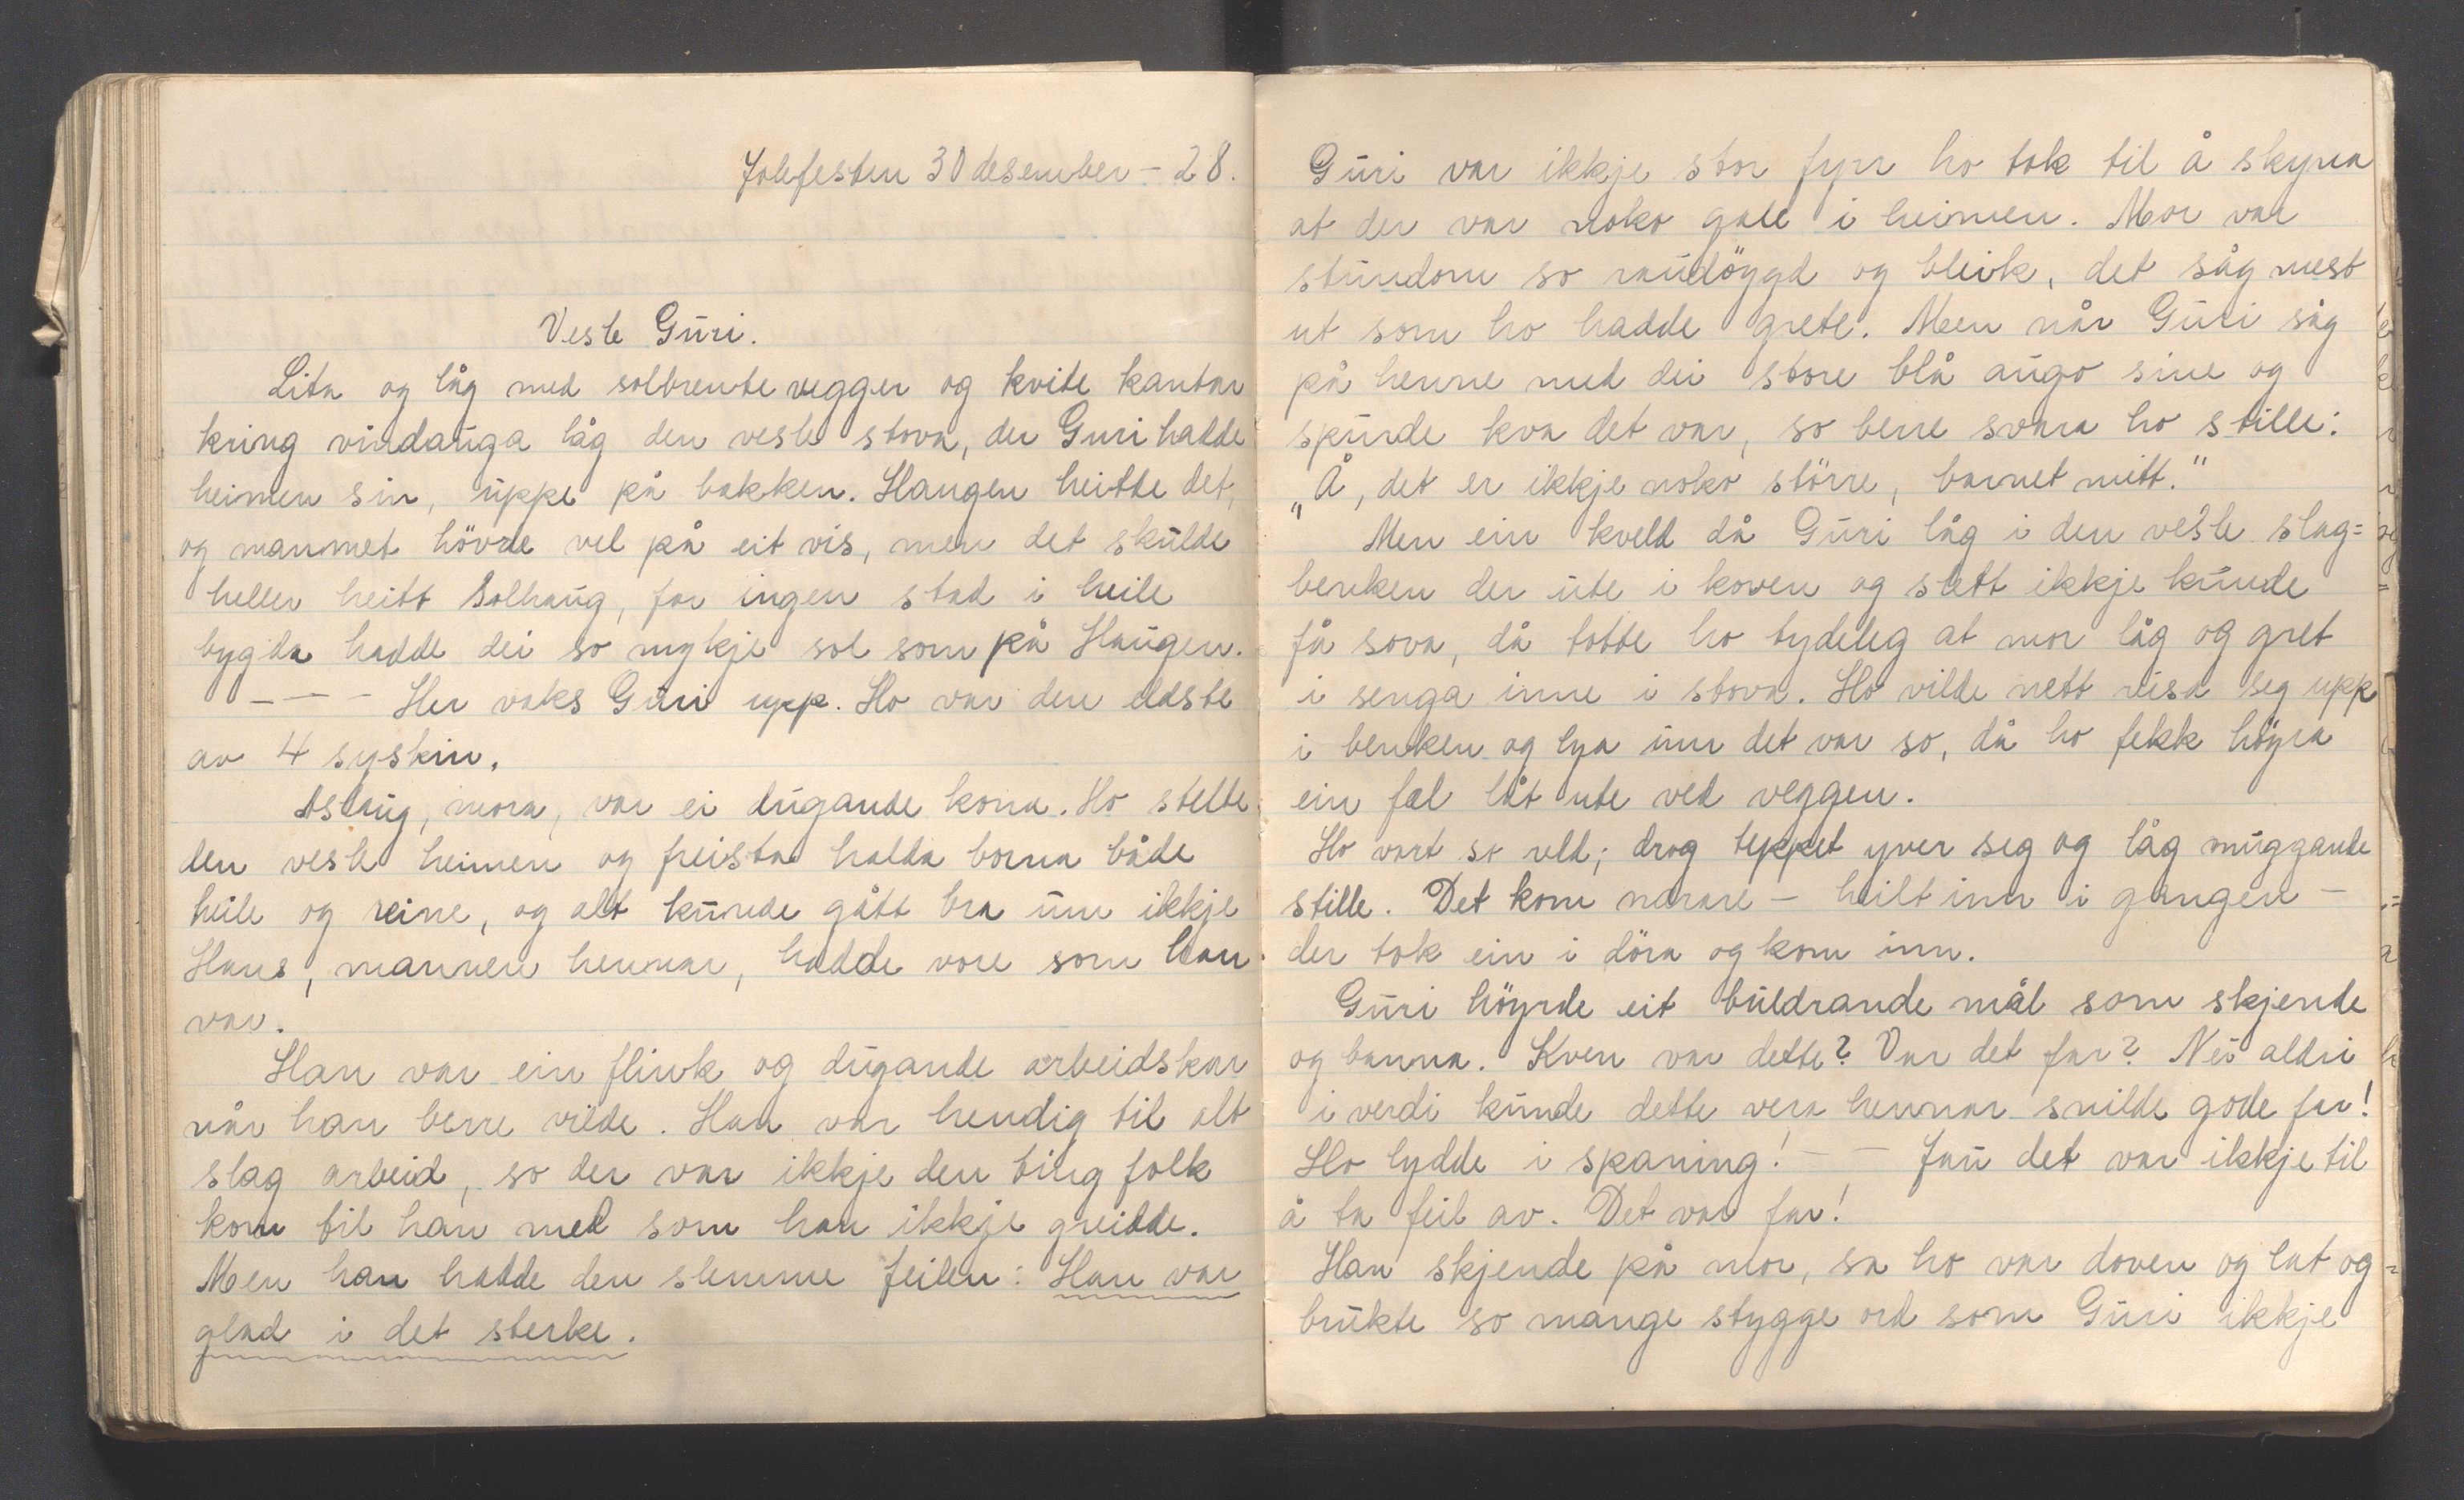 Jolefesten 30 desember - 28.
Vesle Guri.
Lita og låg med solbrente vegger og kvite kantar
kring vindauga låg den vesle stova, der Guri hadde
heimen sin, uppe på bakken. Haugen heitte det,
og namnet hövde vel på eit vis, men det skulde
heller heitt Solhaug, for ingen stad i heile
bygda hadde dei so mykje sol som på Haugen.
- - - Her vaks Guri upp. Ho var den eldste
av 4 syskin.
Aslaug, mora, var ei dugande kona. Ho stelte
den vesle heimen og freista halda borna både
heile og reine, og alt kunde gått bra um ikkje
Hans, mannen hennar, hadde vore som han
var.
Han var ein flink og dugande arbeidskar
når han berre vilde. Han var hendig til alt
slag arbeid, so der var ikkje den ting folk
kom til han med som han ikkje greidde.
Men han hadde den slemme feilen: Han var
glad i det sterke.
Guri var ikkje stor fyrr ho tok til å skyna
at der var noko gale i heimen. Mor var
stundom so raudöygd og bleik, det såg mest
ut som ho hadde grete. Men når Guri såg
på henne med dei store blå augo sine og
spurde kva det var, so berre svara ho stille:
„Å, det er ikkje noko större, barnet mitt."
Men ein kveld då Guri låg i den vesle slag=
benken der ute i koven og slett ikkje kunde
få sova, då totte ho tydeleg at mor låg og gret
i senga inne i stova. Ho vilde nett reisa seg upp
i benken og lya um det var so, då ho fekk höyra
ein fæl låt ute ved veggen.
Ho vart so redd; drog teppet yver seg og låg muggande
stille. Det kom nærare - heilt inn i gangen -
der tok ein i döra og kom inn.
Guri höyrde eit buldrande mål som skjende
og banna. Kven var dette? Var det far? Nei aldri
i verdi kunde dette vera hennar snilde gode far!
Ho lydde i spaning! - - Jau det var ikkje til
å ta feil av. Det var far!
Han skjende på mor, sa ho var doven og lat og
brukte so mange stygge ord som Guri ikkje